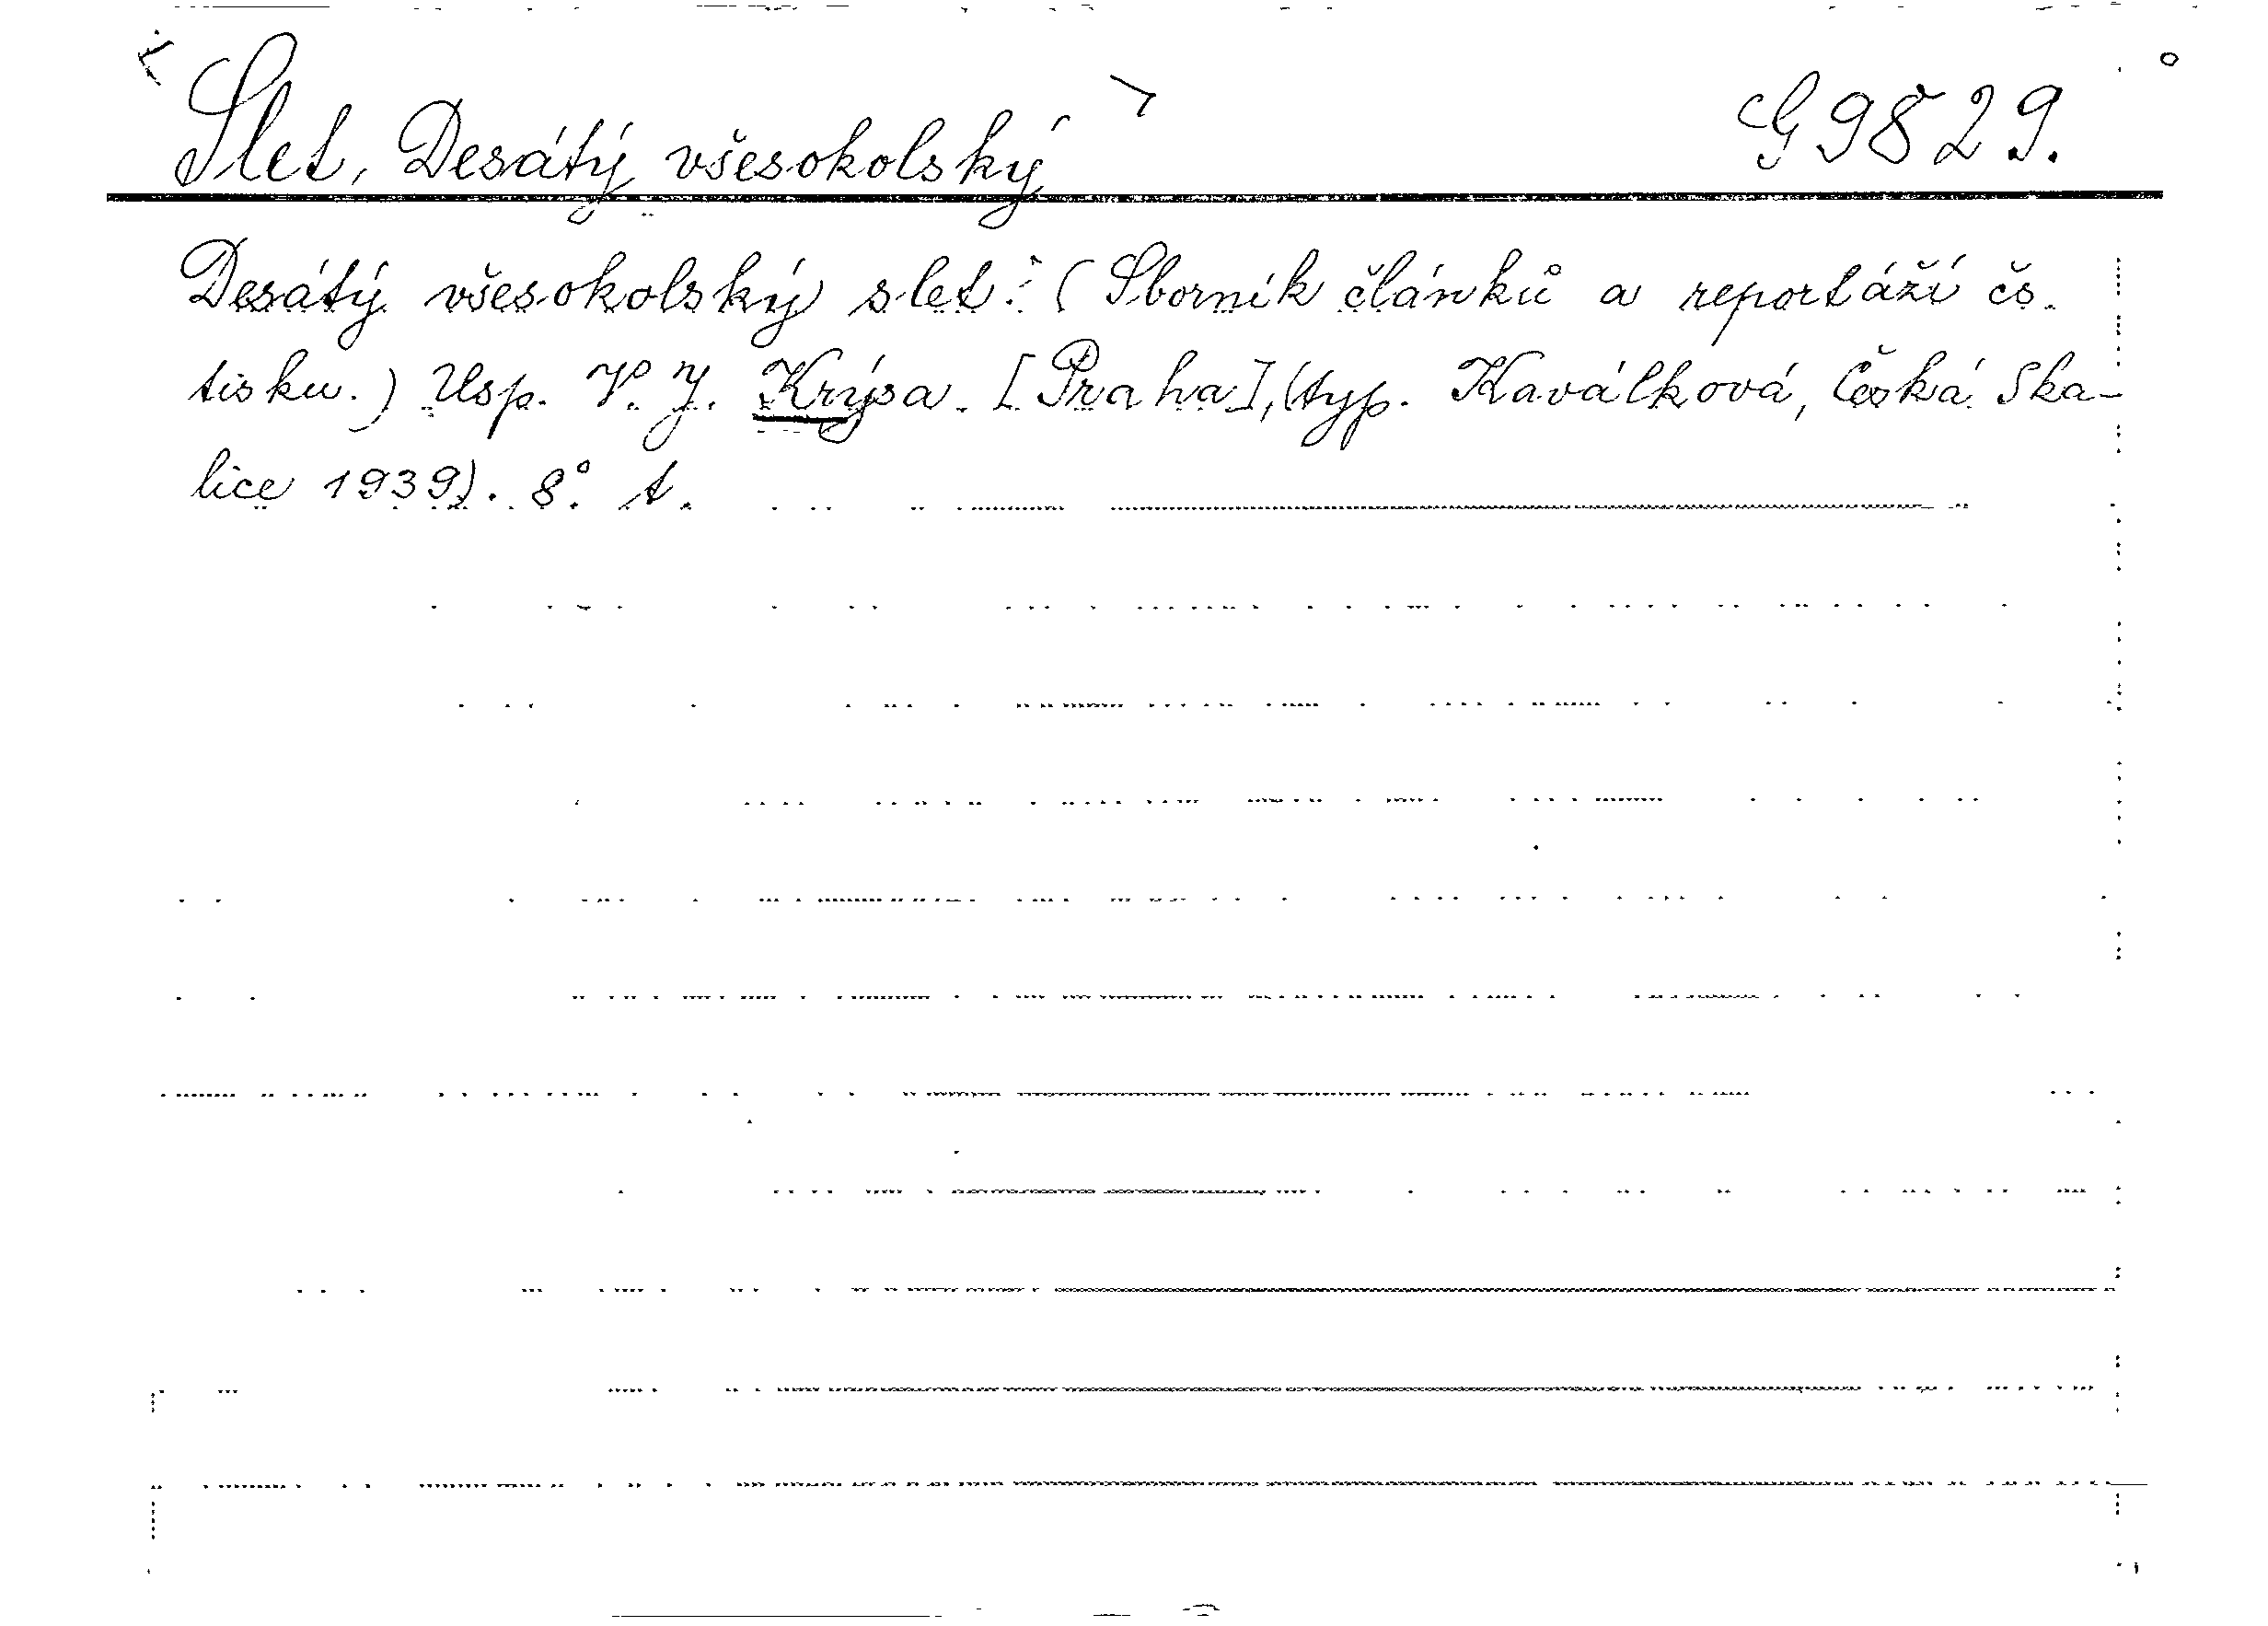 Slet, Desátý všesokolský G 9829.
Desátý všesokolský slet: (Sborník článků a reportáží čs.
tisku.) Usp. V. J. Krýsa. [Praha], (typ. Kaválková, Česká Ska-
lice 1939). 8° t.